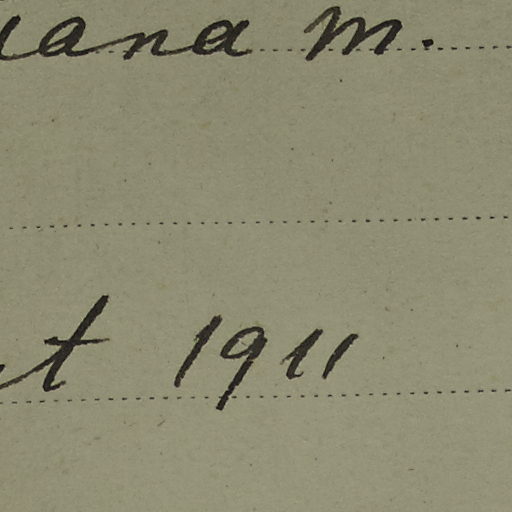 ana M.
t 1911